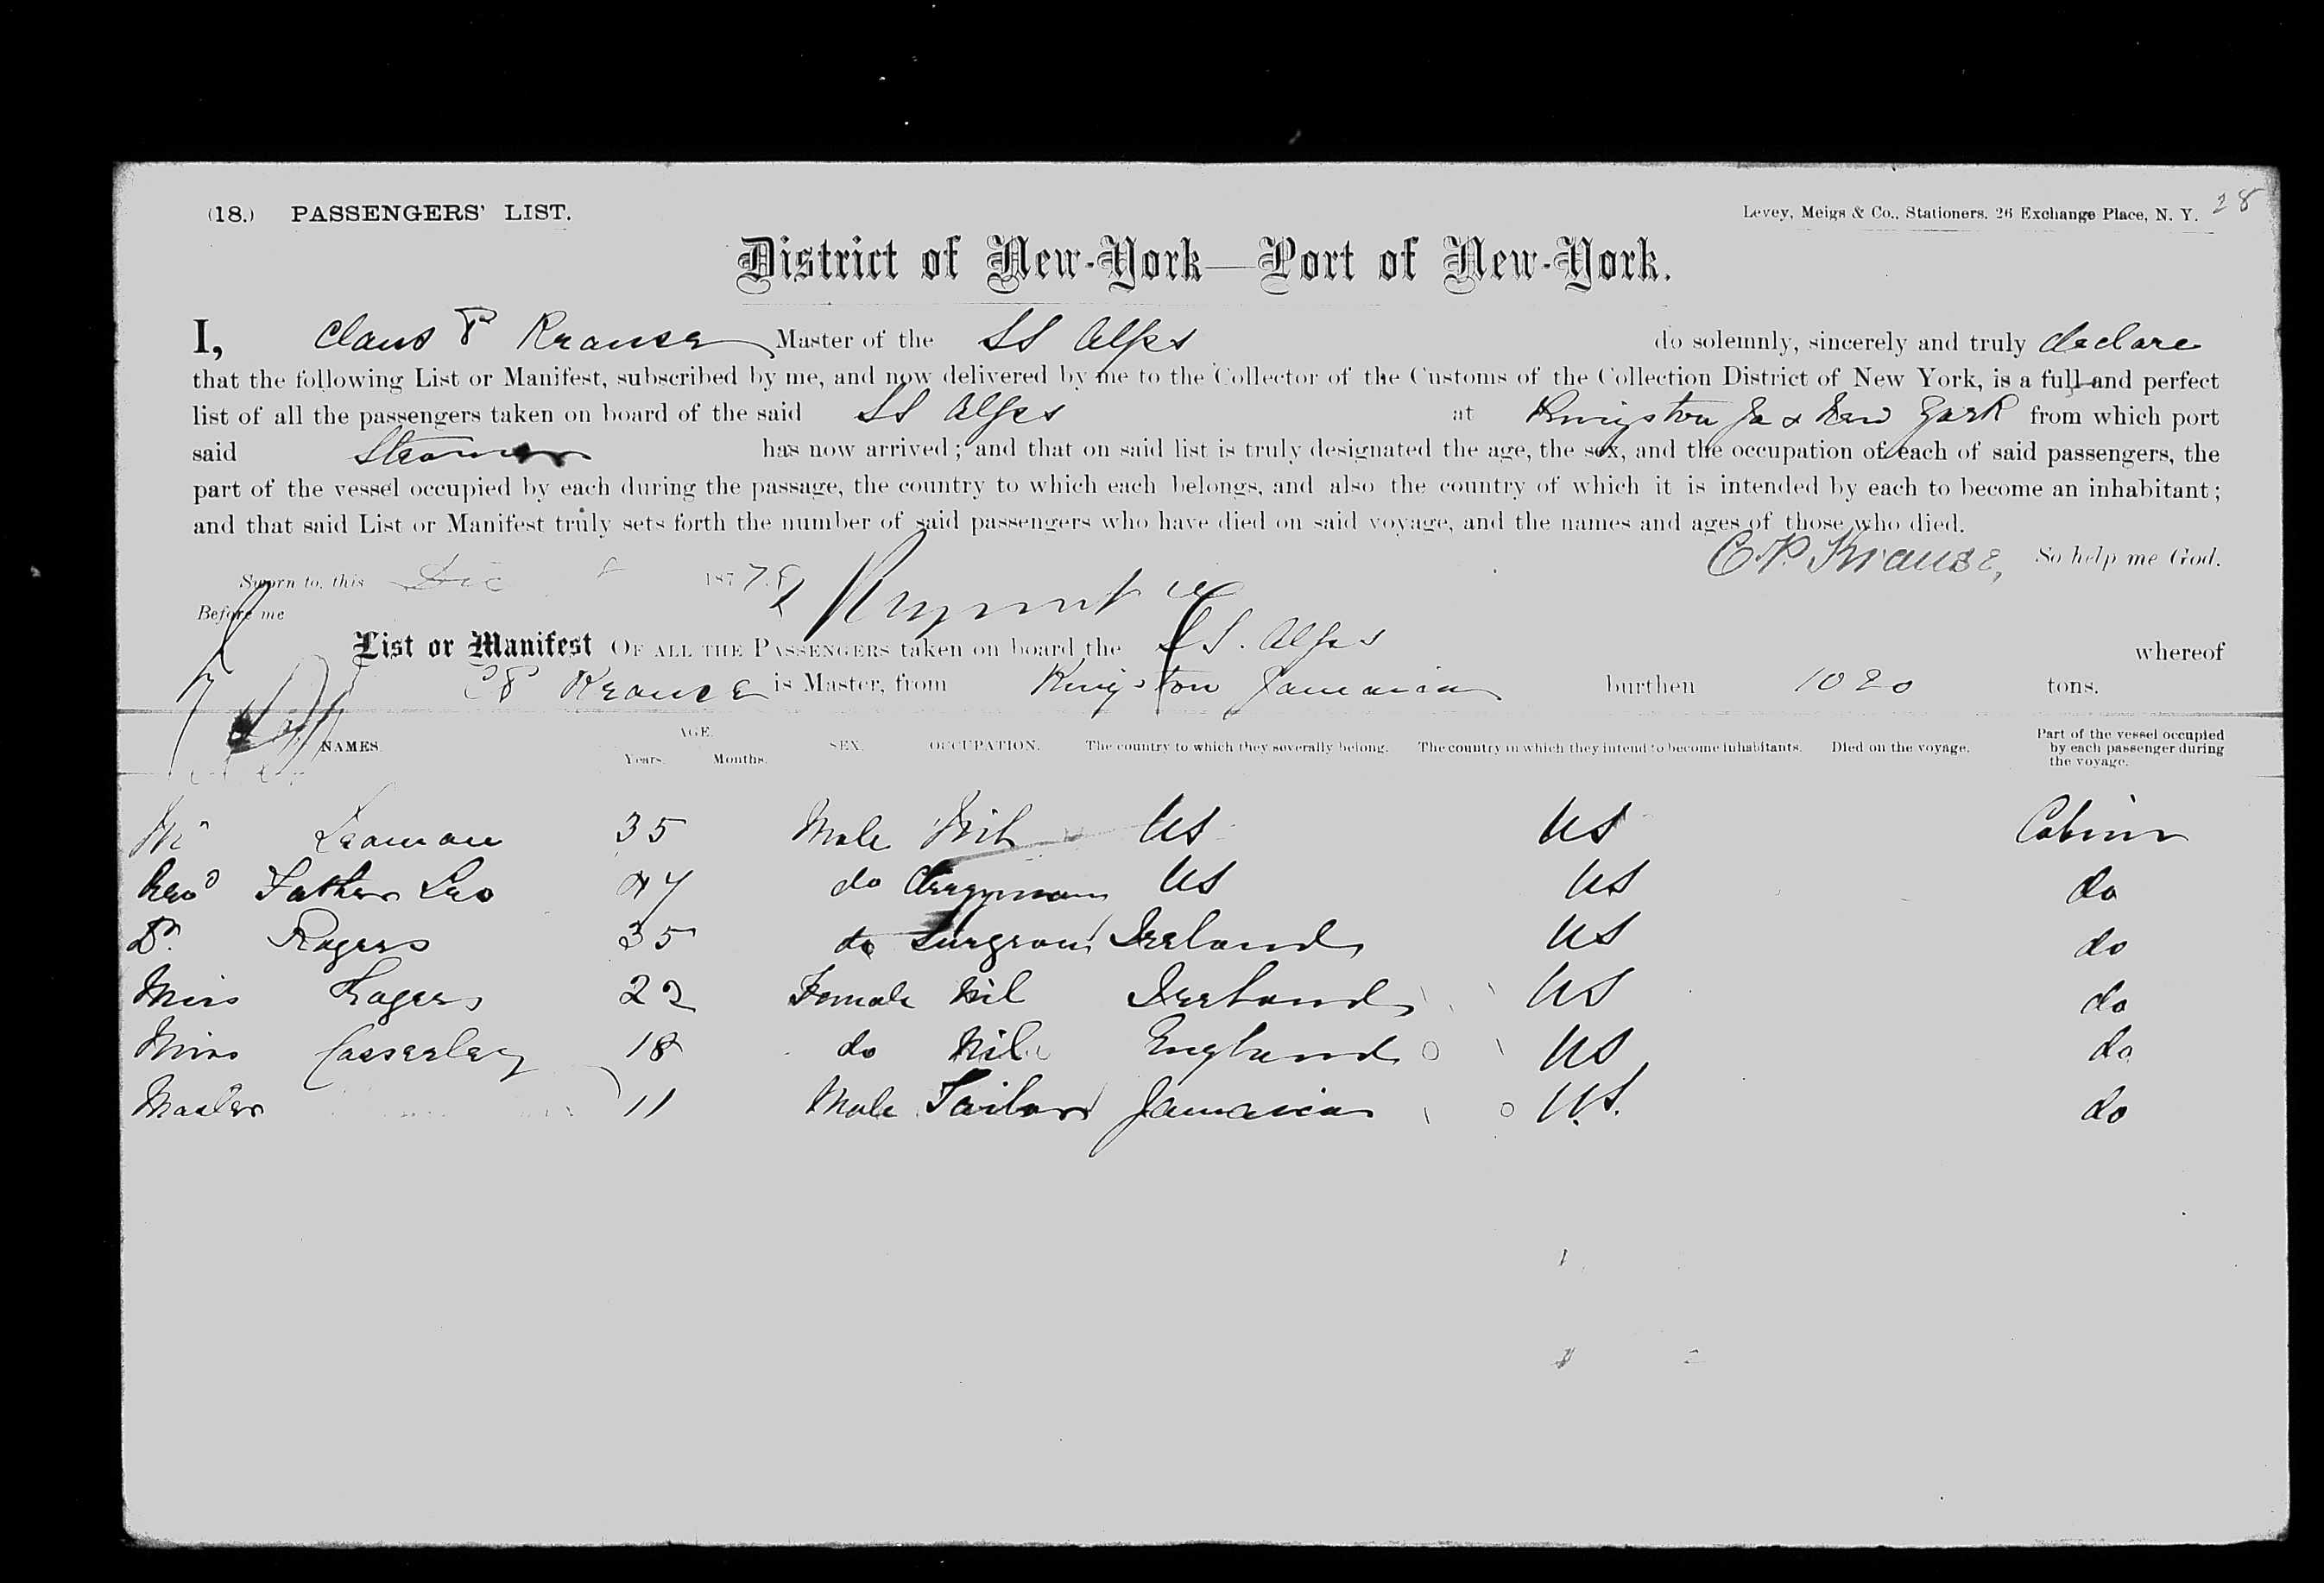 (18.) PASSENGERS' LIST.
Levey, Meigs & Co., Stationers, 26 Exchange Place, N. Y. 28
District of New-York—Port of New-York.
I, Claus P Krause Master of the SS Alps do solemnly, sincerely and truly declare
that the following List or Manifest, subscribed by me, and now delivered by me to the Collector of the Customs of the Collection District of New York, is a full and perfect
list of all the passengers taken on board of the said SS Alps at Kingston Ja & New York from which port
said Steamer has now arrived; and that on said list is truly designated the age, the sex, and the occupation of each of said passengers, the
part of the vessel occupied by each during the passage, the country to which each belongs, and also the country of which it is intended by each to become an inhabitant;
and that said List or Manifest truly sets forth the number of said passengers who have died on said voyage, and the names and ages of those who died.
C. P. Krause, So help me God.
Sworn to, this Dec 187
Before me
List or Manifest OF ALL THE PASSENGERS taken on board the SS. Alps whereof
C P Krause is Master, from Kingston Jamaica burthen 1020 tons.
NAMES. AGE. Years. Months. SEX. OCCUPATION. The country to which they severally belong. The country in which they intend to become inhabitants. Died on the voyage. Part of the vessel occupied by each passenger during the voyage.
Mr Leaman 35 Male Nil US US Cabin
Revd Father Leo 47 do Clergyman US US do
Dr. Rogers 35 do Surgeon Ireland US do
Miss Rogers 22 Female Nil Ireland US do
Miss Casserley 18 do Nil England US do
Master 11 Male Tailor Jamaica U.S. do